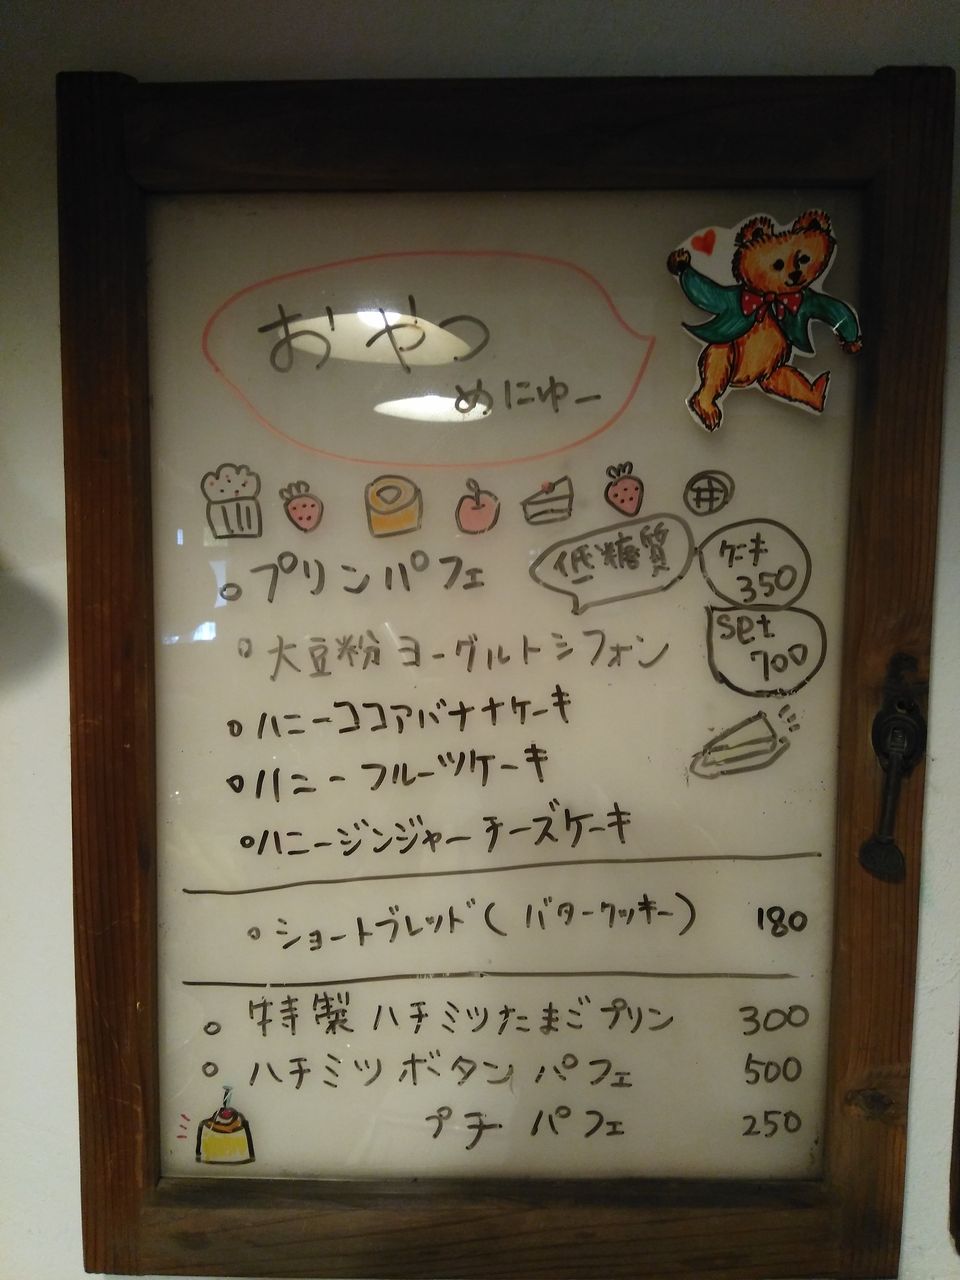 おやつ
めにゅー
。プリンパフェ
低糖質
ケーキ
350
set
700
。大豆粉ヨーグルトシフォン
。ハニーココアバナナケーキ
。ハニーフルーツケーキ
。ハニージンジャーチーズケーキ
。ショートブレッド(バタークッキー) 180
。特製ハチミツたまごプリン 300
。ハチミツボタンパフェ 500
プチパフェ 250